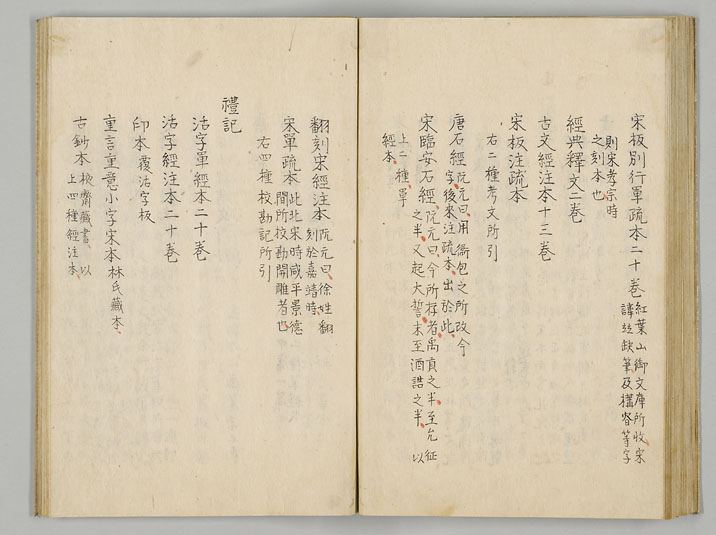 宋板別行單疏本二十卷 紅葉山御文庫所收宋
諱竝缺筆及構眘等字
則宋孝宗時
之刻本也
經典釋文二卷
古文經注本十三卷
宋板注疏本
右二種考文所引
唐石經 阮元曰用衞包之所改今
字後來注疏本出於此
宋臨安石經 阮元曰今所存者禹貢之半至允征
之半又起大誓末至酒誥之半 以
上二種單
經本
翻刻宋經注本 阮元曰徐姓翻
刻於嘉靖時
宋單疏本 此北宋時咸平景德
閒所校勘開雕者也
右四種校勘記所引
禮記
活字單經本二十卷
活字經注本二十卷
印本 覆活字板
重言重意小字宋本 林氏藏本
古鈔本 棭齋藏書 以
上四種經注本